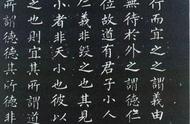 行而宜之之謂義由
無待於外之謂德仁
位故道有君子小人
仁義非毀之也其見
小者非天小也彼以
之也則宜其所謂道
所謂德德其所德非